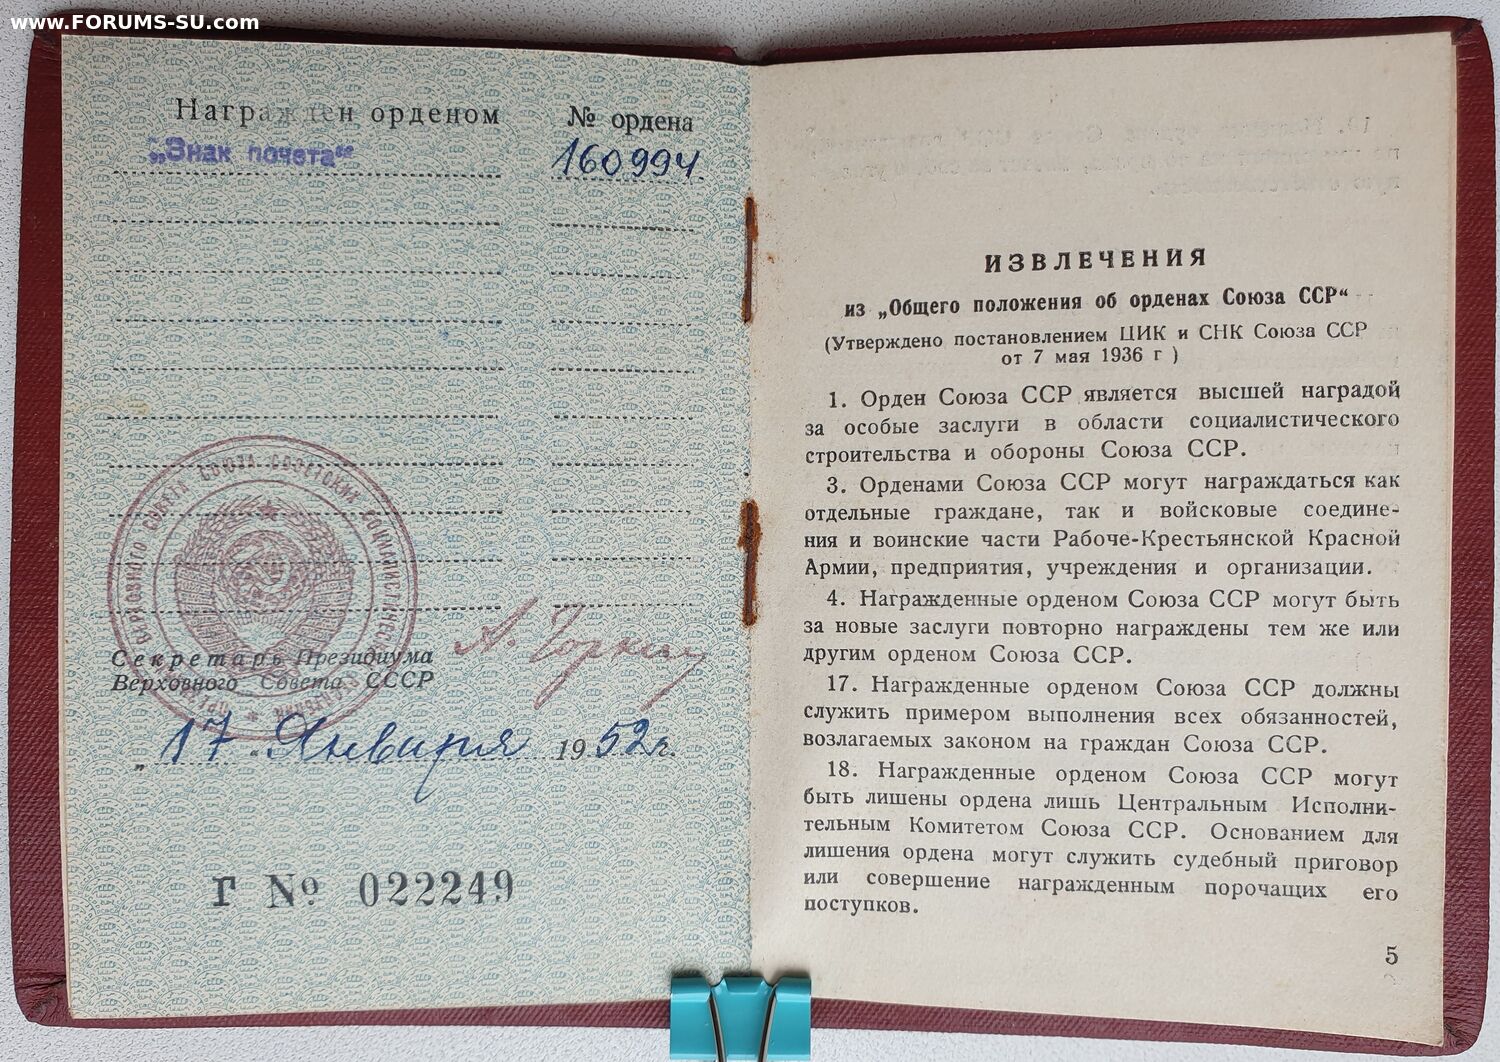 www.FORUMS-SU.com
Награжден орденом
№ ордена
„Знак почета“
160994
ВЕРХОВНОГО СОВЕТА СОЮЗА СОВЕТСКИХ СОЦИАЛИСТИЧЕСКИХ
Секретарь Президиума
Верховного Совета СССР
А. Горкин
„17“ Января 1952 г.
Г № 022249
ИЗВЛЕЧЕНИЯ
из „Общего положения об орденах Союза ССР“
(Утверждено постановлением ЦИК и СНК Союза ССР
от 7 мая 1936 г )
1. Орден Союза ССР является высшей наградой
за особые заслуги в области социалистического
строительства и обороны Союза ССР.
3. Орденами Союза ССР могут награждаться как
отдельные граждане, так и войсковые соедине-
ния и воинские части Рабоче-Крестьянской Красной
Армии, предприятия, учреждения и организации.
4. Награжденные орденом Союза ССР могут быть
за новые заслуги повторно награждены тем же или
другим орденом Союза ССР.
17. Награжденные орденом Союза ССР должны
служить примером выполнения всех обязанностей,
возлагаемых законом на граждан Союза ССР.
18. Награжденные орденом Союза ССР могут
быть лишены ордена лишь Центральным Исполни-
тельным Комитетом Союза ССР. Основанием для
лишения ордена могут служить судебный приговор
или совершение награжденным порочащих его
поступков.
5